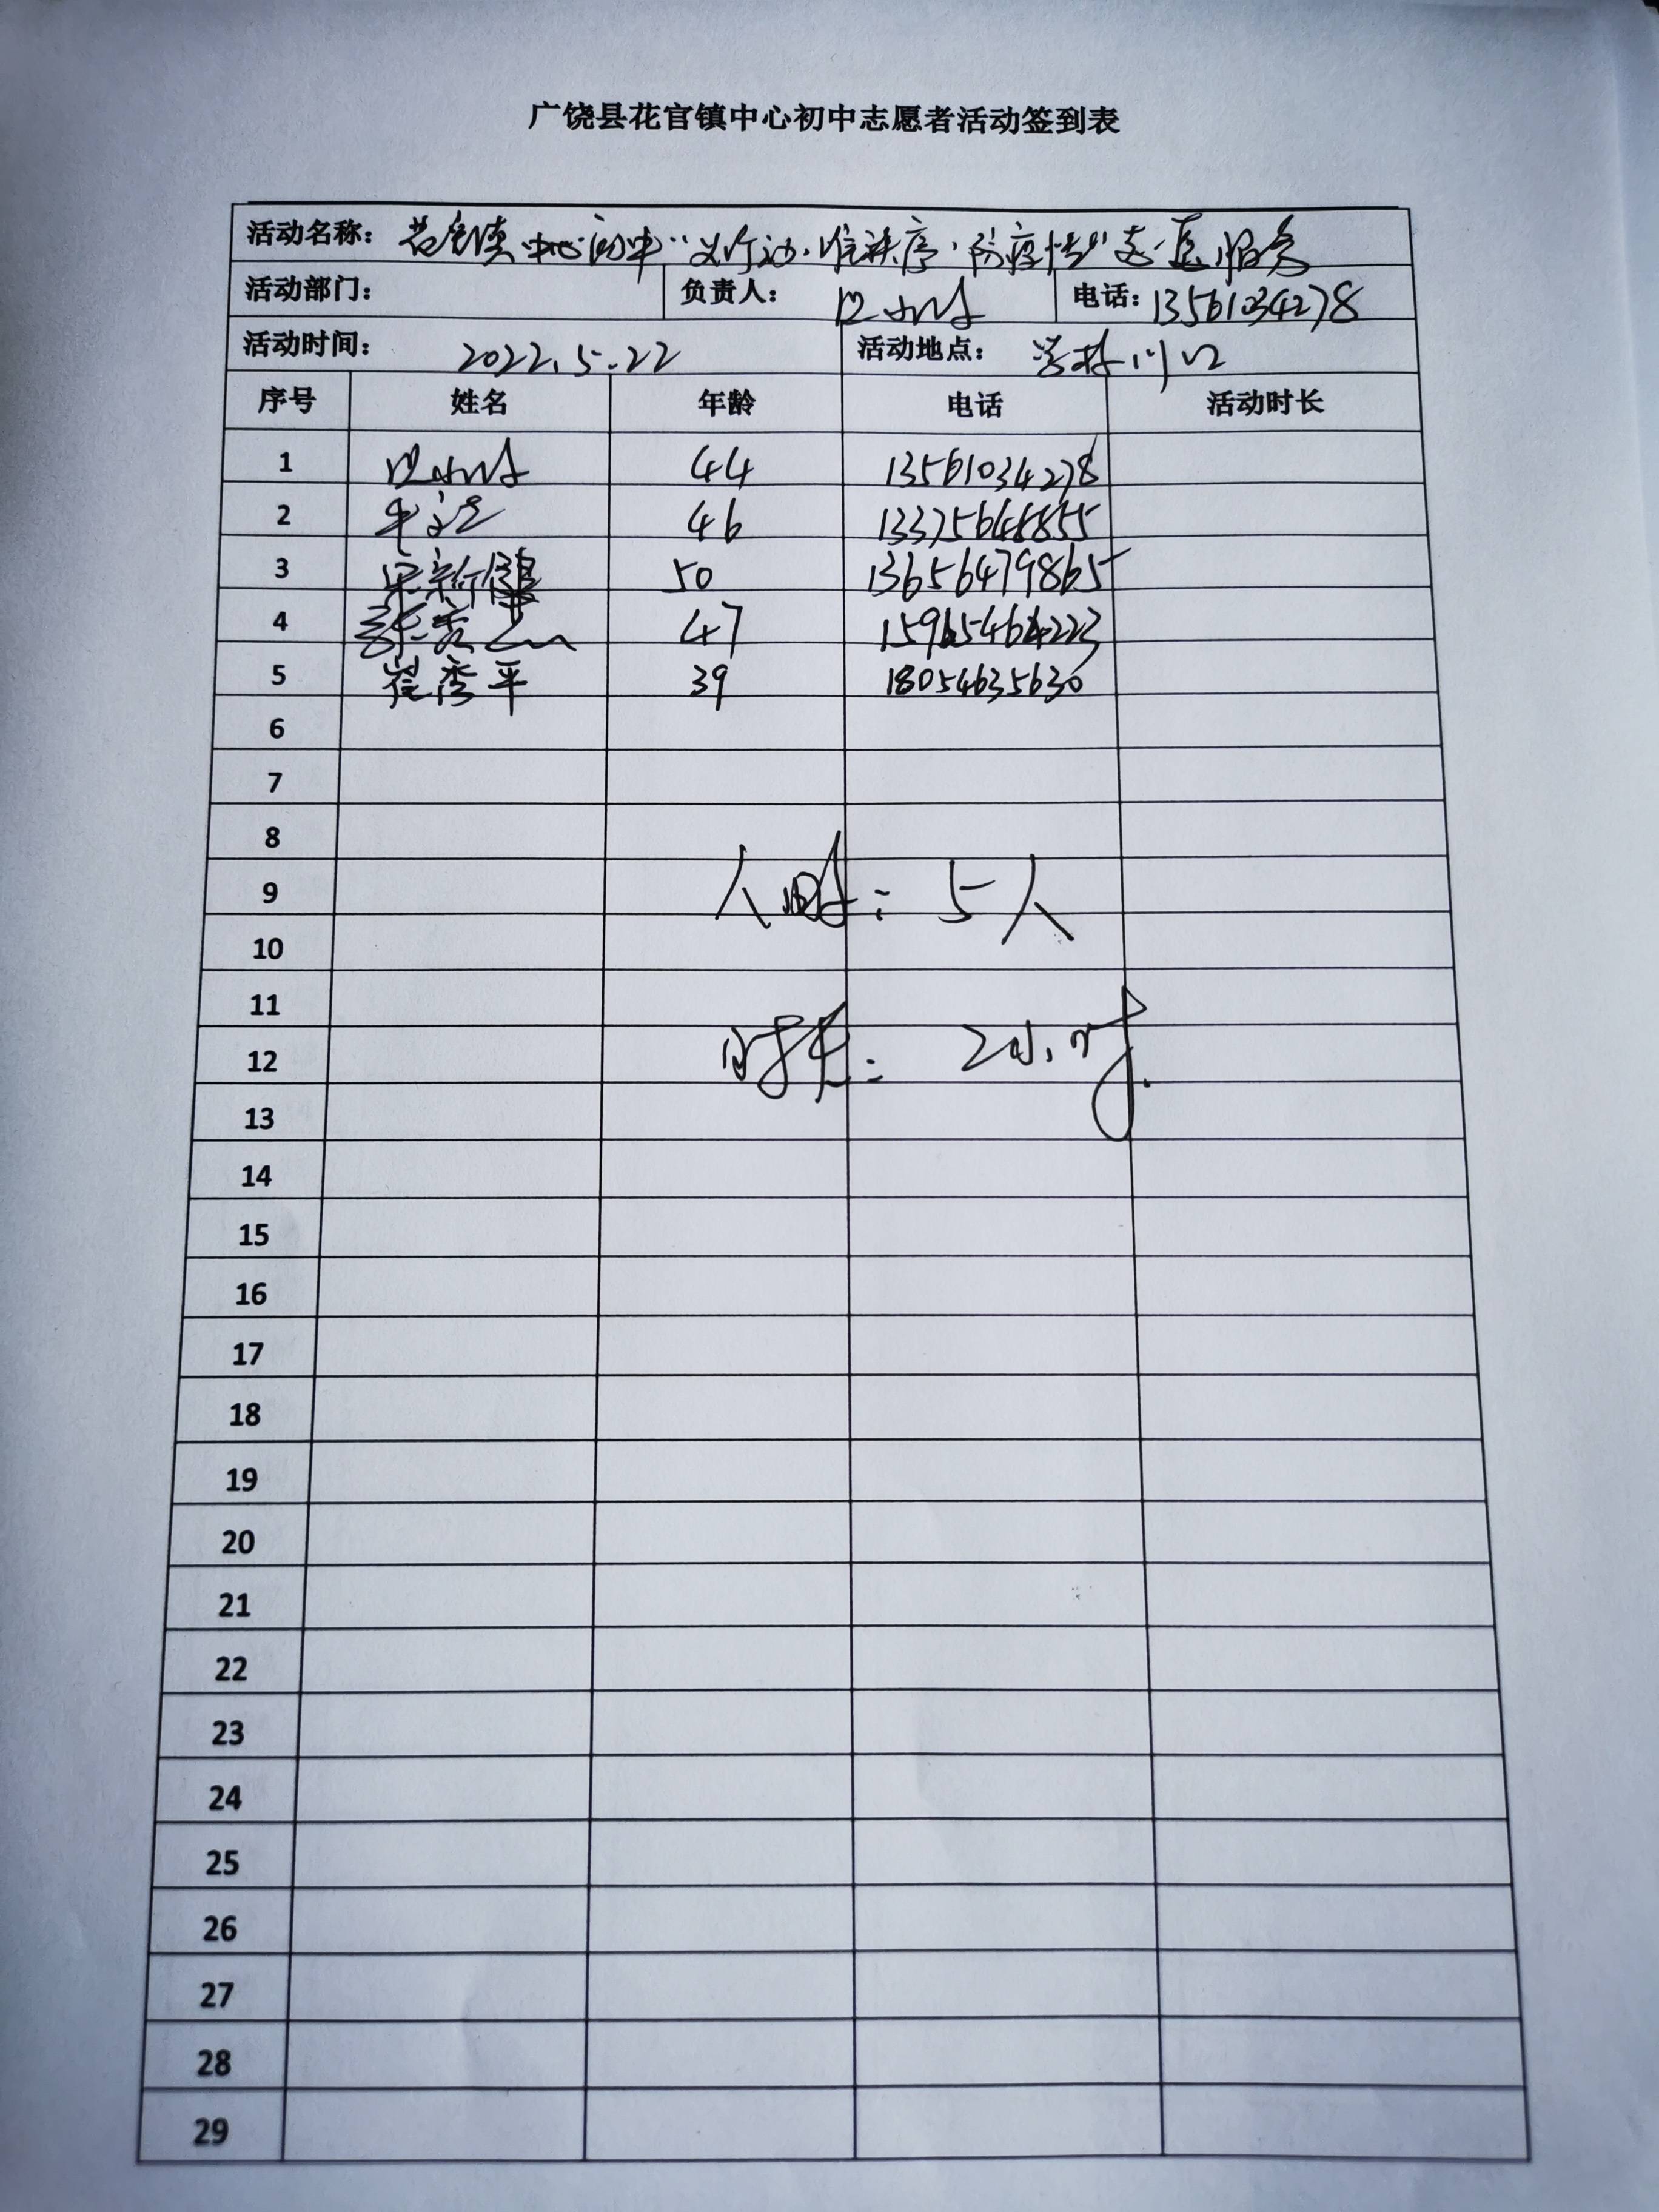 广饶县花官镇中心初中志愿者活动签到表
活动名称： 花官镇中心初中“文行动，维秩序，防疫情”志愿服务
活动部门： 负责人： 电话：13561034278
活动时间： 2022.5.22 活动地点： 学校门口
序号 姓名 年龄 电话 活动时长
1 44 13561034278
2 46
3 50 13656479865
4 47
5 崔秀平 39 18054635630
6
7
8
9 人时：5人
10
11
12 时长：2小时.
13
14
15
16
17
18
19
20
21
22
23
24
25
26
27
28
29